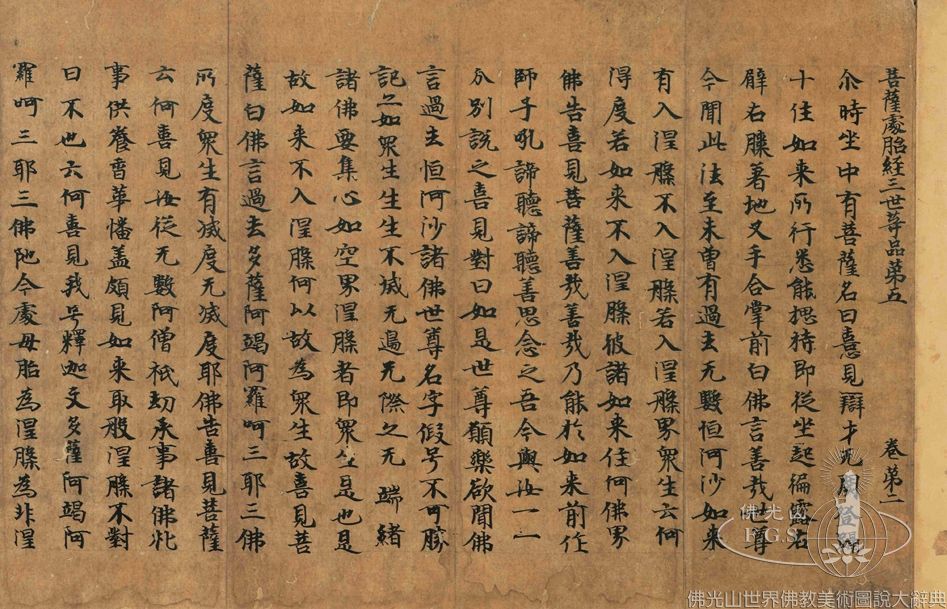 菩薩處胎經三世等品第五 卷第二
尒時坐中有菩薩名曰憙見辯才无
十住如來所行悉能揔持即從坐起徧露右
臂右膝著地叉手合掌前白佛言善哉世尊
今聞此法至未曾有過去无數恒河沙如來
有入涅槃不入涅槃若入涅槃界衆生云何
得度若如來不入涅槃彼諸如來住何佛界
佛告喜見菩薩善哉善哉乃能於如來前作
師子吼諦聽諦聽善思念之吾今與汝一一
分別說之喜見對曰如是世尊願樂欲聞佛
言過去恒河沙諸佛世尊名字假号不可勝
記亦如衆生生生不滅无邊无際亦无端緒
諸佛要集心如空界涅槃者即衆生是也是
故如來不入涅槃何以故為衆生故喜見菩
薩白佛言過去多薩阿竭阿羅呵三耶三佛
所度衆生有滅度无滅度耶佛告喜見菩薩
云何喜見汝從无數阿僧祇劫承事諸佛礼
事供養香華幡蓋頗見如來取般涅槃不對
曰不也云何喜見我号釋迦文多薩阿竭阿
羅呵三耶三佛陁今處母胎為涅槃為非涅
佛光山
F.G.S.
佛光山世界佛教美術圖說大辭典